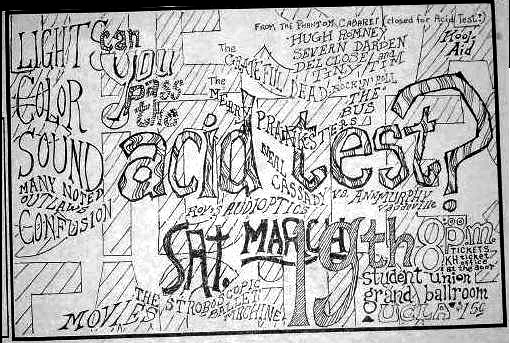 LIGHTS
COLOR
SOUND
MANY NOTED
OUTLAWS
CONFUSION
can
you
pass
the
acid test?
FROM THE PHANTOM CABARET (closed for Acid Test!)
HUGH ROMNEY
SEVERN DARDEN
DEL CLOSE and
TINY TIM
Kool-
Aid
The
GRATEFUL DEAD
ROCK N' ROLL
The
MERRY PRANKSTERS
THE
BUS
NEAL
CASSADY
vs. ANN MURPHY
Vaudeville
ROY'S AUDIOPTICS
SAT. MARCH 19th
8:00 p.m.
TICKETS
KH ticket
office
at the door
student union
grand ballroom
UCLA $1.50
MOVIES
THE STROBOSCOPIC
BALLET
MACHINE